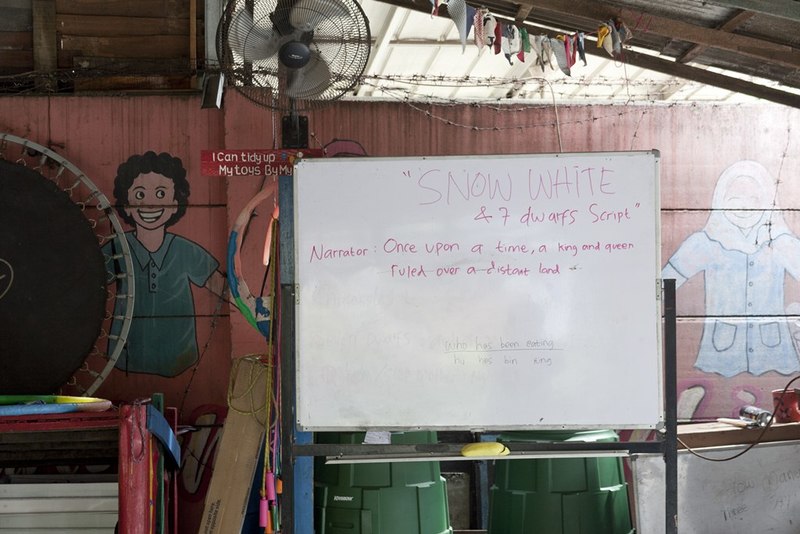 I Can tidy up
My toys By My
"SNOW WHITE
& 7 dwarfs Script"
Narrator: Once upon a time, a king and queen
ruled over a distant land
who has been eating
hu has bin